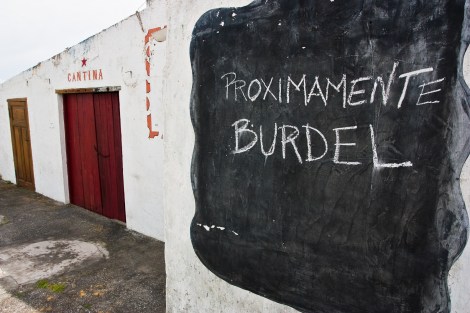 CANTINA
PROXIMAMENTE
BURDEL